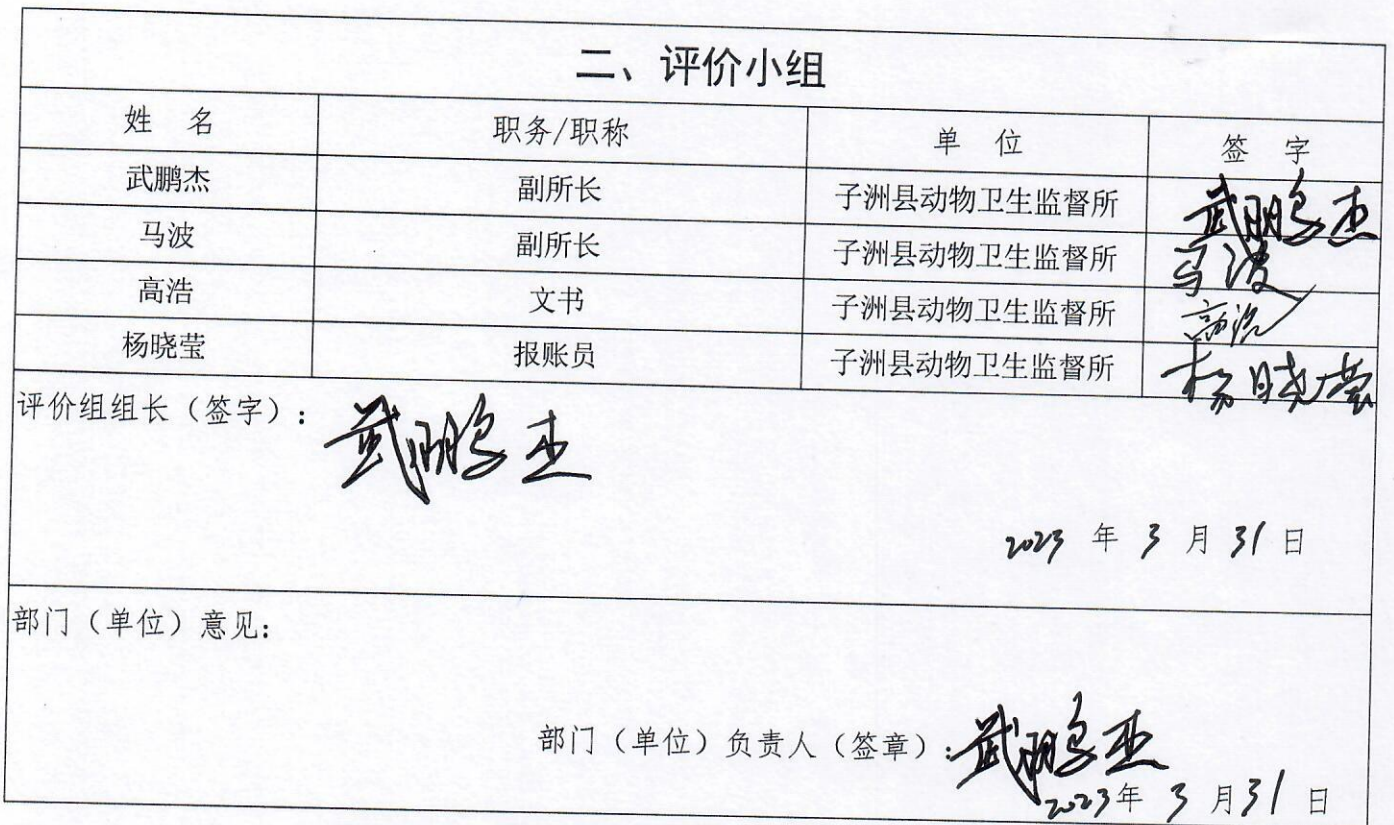 二、评价小组
姓 名 职务/职称 单 位 签 字
武鹏杰 副所长 子洲县动物卫生监督所 武鹏杰
马波 副所长 子洲县动物卫生监督所 马波
高浩 文书 子洲县动物卫生监督所 高浩
杨晓莹 报账员 子洲县动物卫生监督所 杨晓莹
评价组组长（签字）： 武鹏杰
2023 年 3 月 31 日
部门（单位）意见：
部门（单位）负责人（签章）：武鹏杰
2023年 3 月 31 日